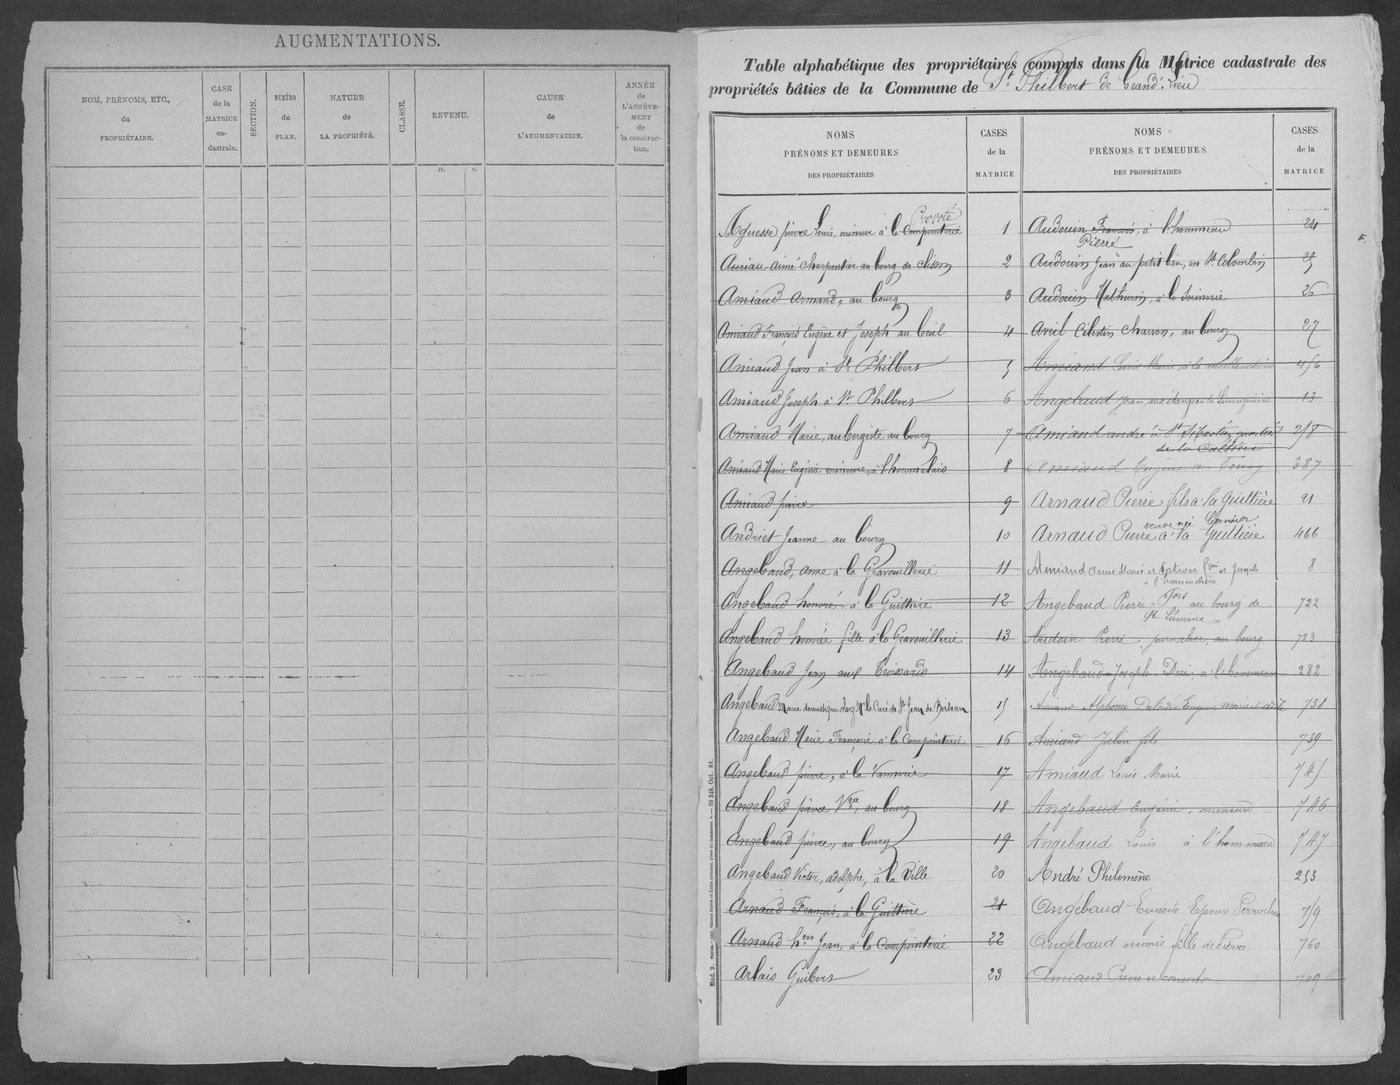 AUGMENTATIONS.
NOM, PRÉNOMS, ETC.,
du
PROPRIÉTAIRE.
CASE
de la
MATRICE
ca-
dastrale.
SECTION.
NUMÉRO
du
PLAN.
NATURE
de
LA PROPRIÉTÉ.
CLASSE.
REVENU.
fr. c.
CAUSE
de
L'AUGMENTATION.
ANNÉE
de
L'ACHÈVE-
MENT
de
la construc-
tion.
Table alphabétique des propriétaires compris dans la Matrice cadastrale des
propriétés bâties de la Commune de St Philbert de Grand Lieu
NOMS
PRÉNOMS ET DEMEURES
DES PROPRIÉTAIRES
CASES
de la
MATRICE
NOMS
PRÉNOMS ET DEMEURES
DES PROPRIÉTAIRES
CASES
de la
MATRICE
Aguesse pierre Louis, mineur à la Compointerie 1
Auriau aimé charpentier au bourg de clisson 2
Amiaud armand, au bourg 3
Amiaud François Eugène et Joseph au breil 4
Amiaud Jean à St Philbert 5
Amiaud Joseph à St Philbert 6
Amiaud Marie, aubergiste au bourg 7
Amiaud Marie Eugénie mineure, à l'hommelais 8
Amiaud pierre 9
Andriet Jeanne au bourg 10
Angebaud, anne à la Gravouillerie 11
Angebaud honoré, à la Guitterie 12
Angebaud honoré fille à la Gravouillerie 13
Angebaud Jean aux Croisards 14
Angebaud Marie domestique chez Mr le Curé de St Jean de Boiseau 15
Angebaud Marie Françoise, à la Compointerie 16
Angebaud pierre, à la Vannerie 17
Angebaud pierre Vve, au bourg 18
Angebaud pierre, au bourg 19
Angebaud Victor, adolphe, à la Ville 20
Arnaud François, à la Guittière 21
Arnaud hers Jean, à la Compointerie 22
Arlais Guibert 23
Audouin François, à l'hommeau 24
Pierre
Audouin Jean au petit lieu, en St Colombin 25
Audouin Mathurin, à la 26
Avril Célestin charron, au bourg 27
Amiaud Marie, à la 456
Angebaud Jean 13
Amiaud andré à St 258
de la
Amiaud Eugène au bourg 387
Arnaud Pierre fils à la Guittière 91
Arnaud Pierre à la Guittière 466
veuve née
Amiaud anne Marie et et Joseph 8
Angebaud Pierre Fois au bourg de 722
St Lumine
Audoin Pierre journalier, au bourg 723
Angebaud Joseph à l'hommeau 282
Amiaud Alphonse Eugène 738
Amiaud Julien fils 739
Amiaud Louis Marie 745
Angebaud Eugénie, mineure 746
Angebaud Louis à l'hommeau 747
André Philomène 253
Angebaud Epoux 759
Angebaud marie fille de Pierre 760
Amiaud Pierre et consorts 709